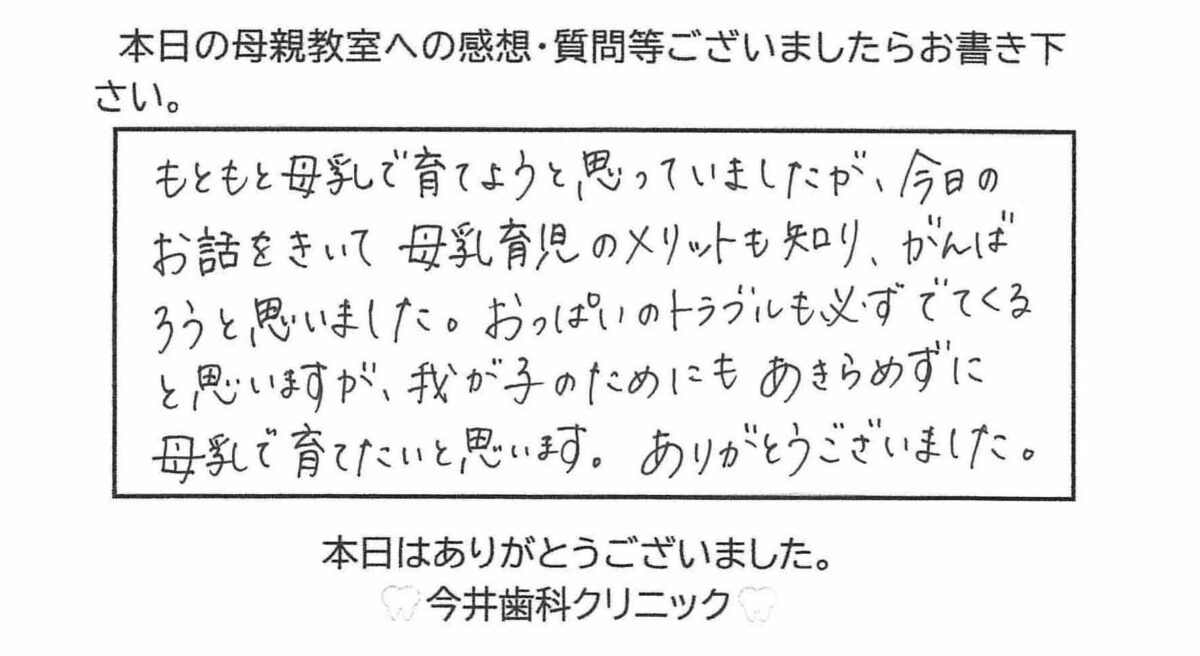 本日の母親教室への感想・質問等ございましたらお書き下
さい。
もともと母乳で育てようと思っていましたが、今日の
お話をきいて 母乳育児のメリットも知り、がんば
ろうと思いました。おっぱいのトラブルも必ずでてくる
と思いますが、我が子のためにも あきらめずに
母乳で育てたいと思います。 ありがとうございました。
本日はありがとうございました。
今井歯科クリニック